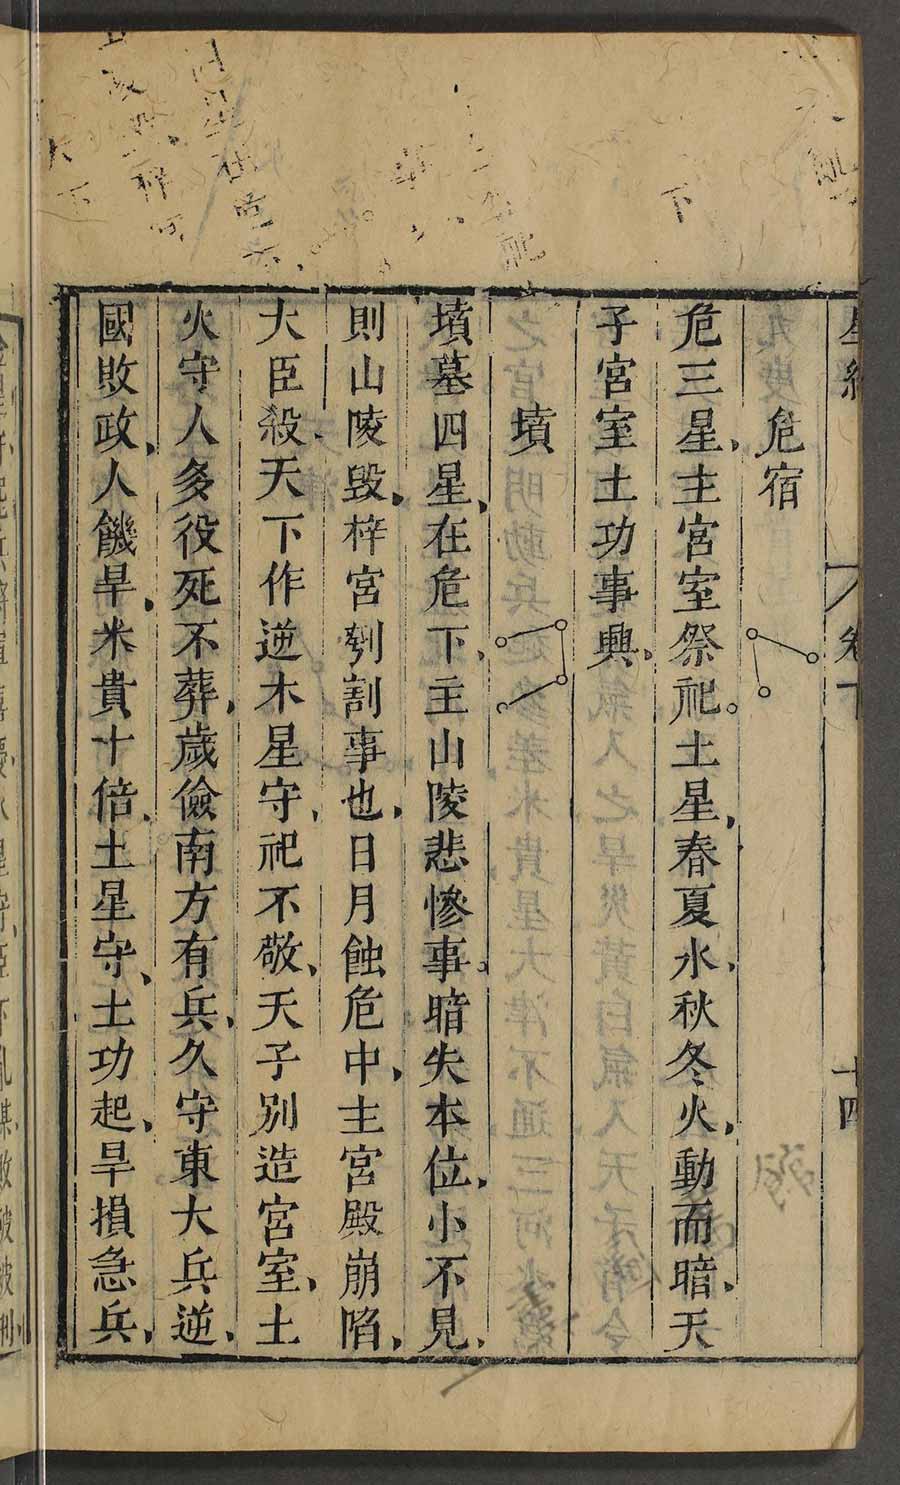 星經 卷下 十四
危宿
危三星、主宮室祭祀。土星、春夏水、秋冬火、動而暗、天
子宮室土功事興、
墳
墳墓四星、在危下、主山陵悲慘事、暗失本位、小不見、
則山陵毀、梓宮刳割事也、日月蝕危中、主宮殿崩陷、
大臣殺、天下作逆木星守、祀不敬、天子別造宮室、土
火守人多役死不葬、歲儉南方有兵、久守東大兵逆、
國敗政、人饑旱、米貴十倍、土星守、土功起、旱損急兵、